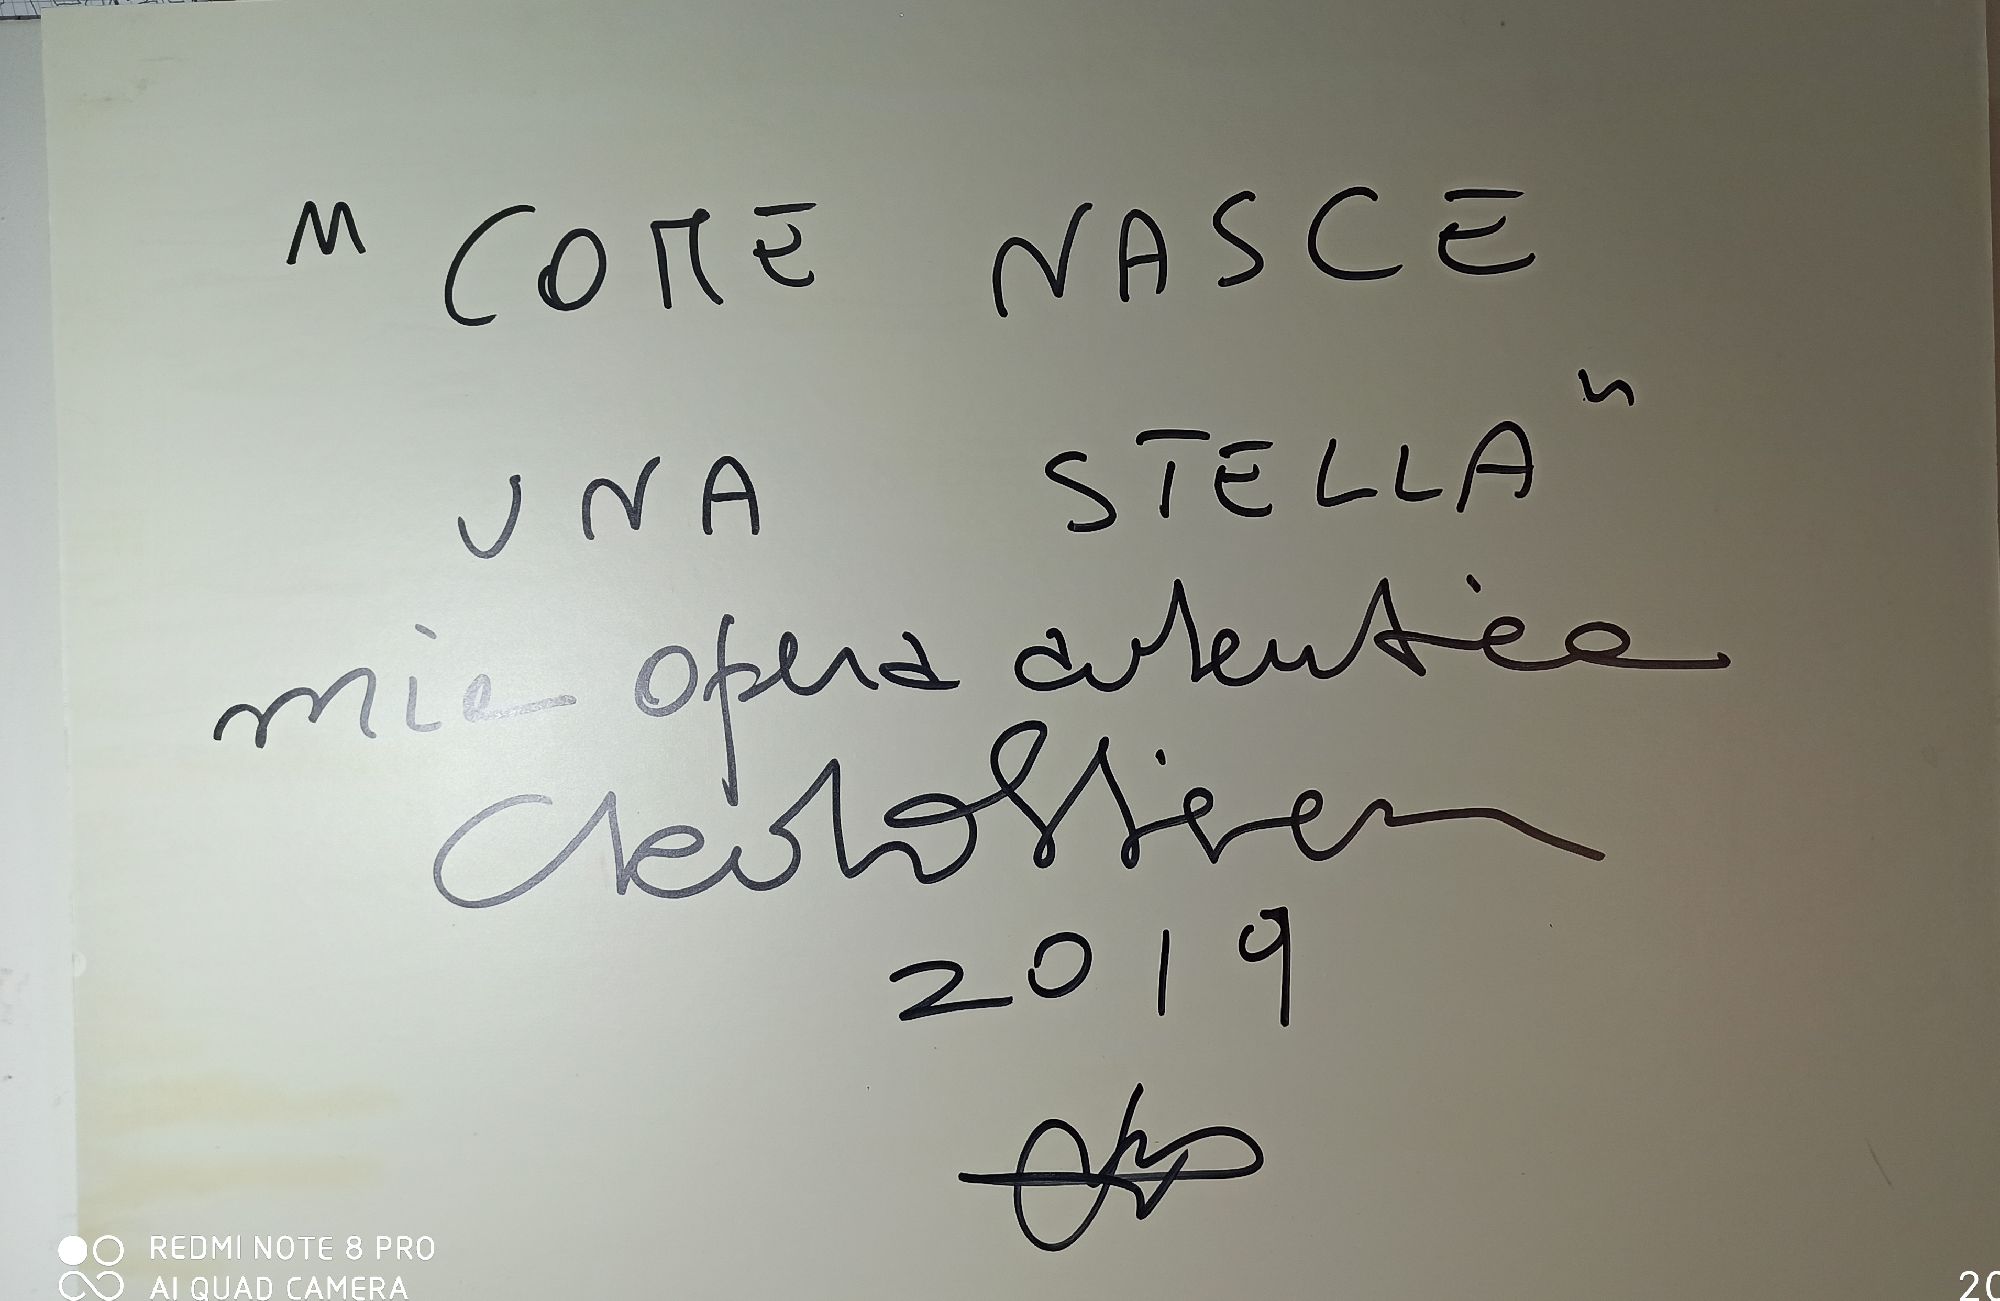 "COME NASCE
UNA STELLA"
mia opera autentica
2019
REDMI NOTE 8 PRO
AI QUAD CAMERA
20